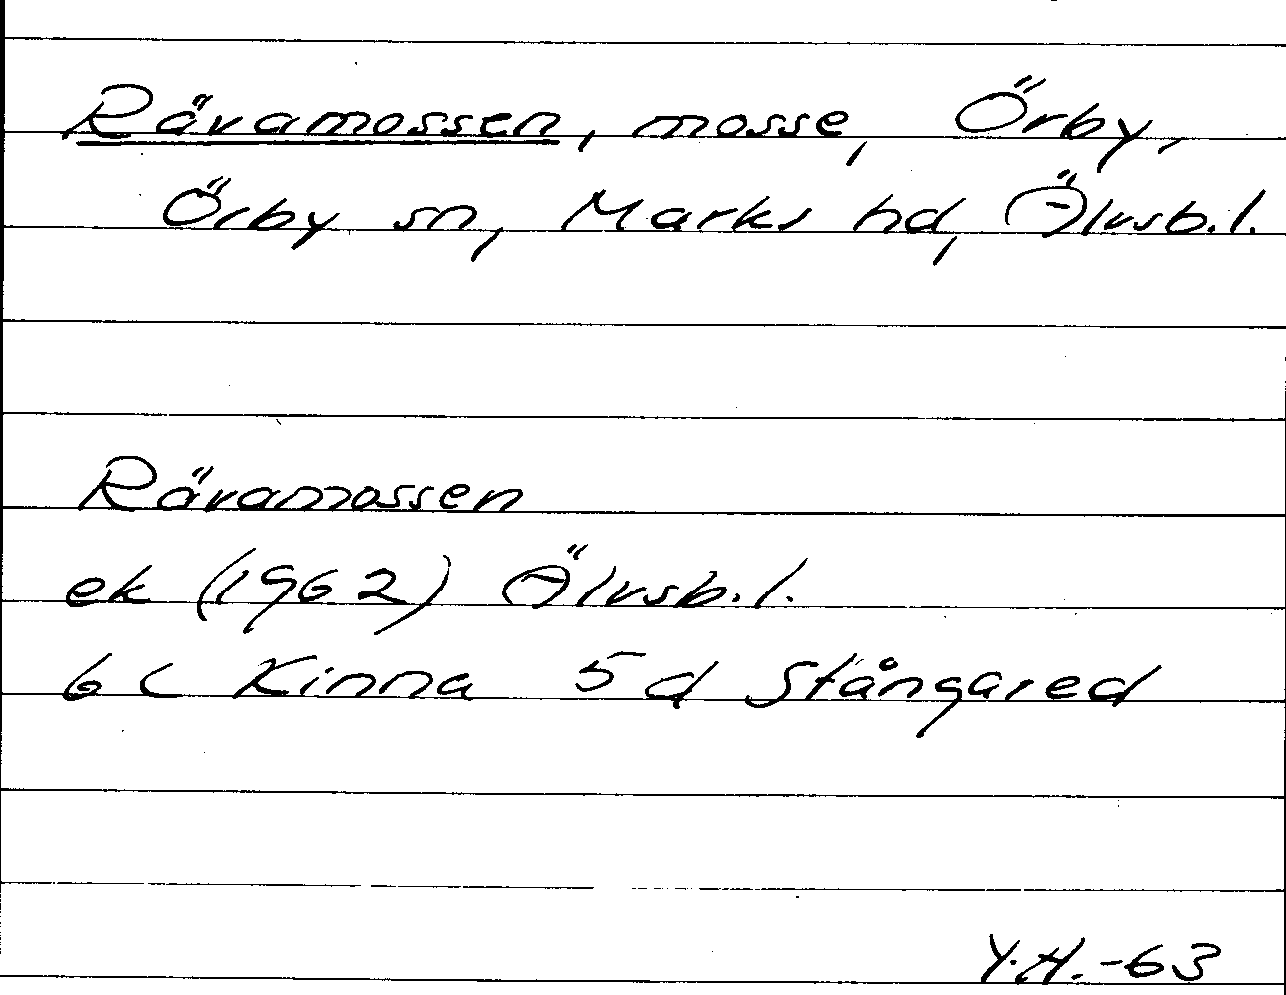 Rävamossen, mosse, Örby,
Örby sn, Marks hd, Älvsb.l.
Rävamossen
ek (1962) Älvsb.l.
6 C Kinna 5 d Stångared
Y.H.-63